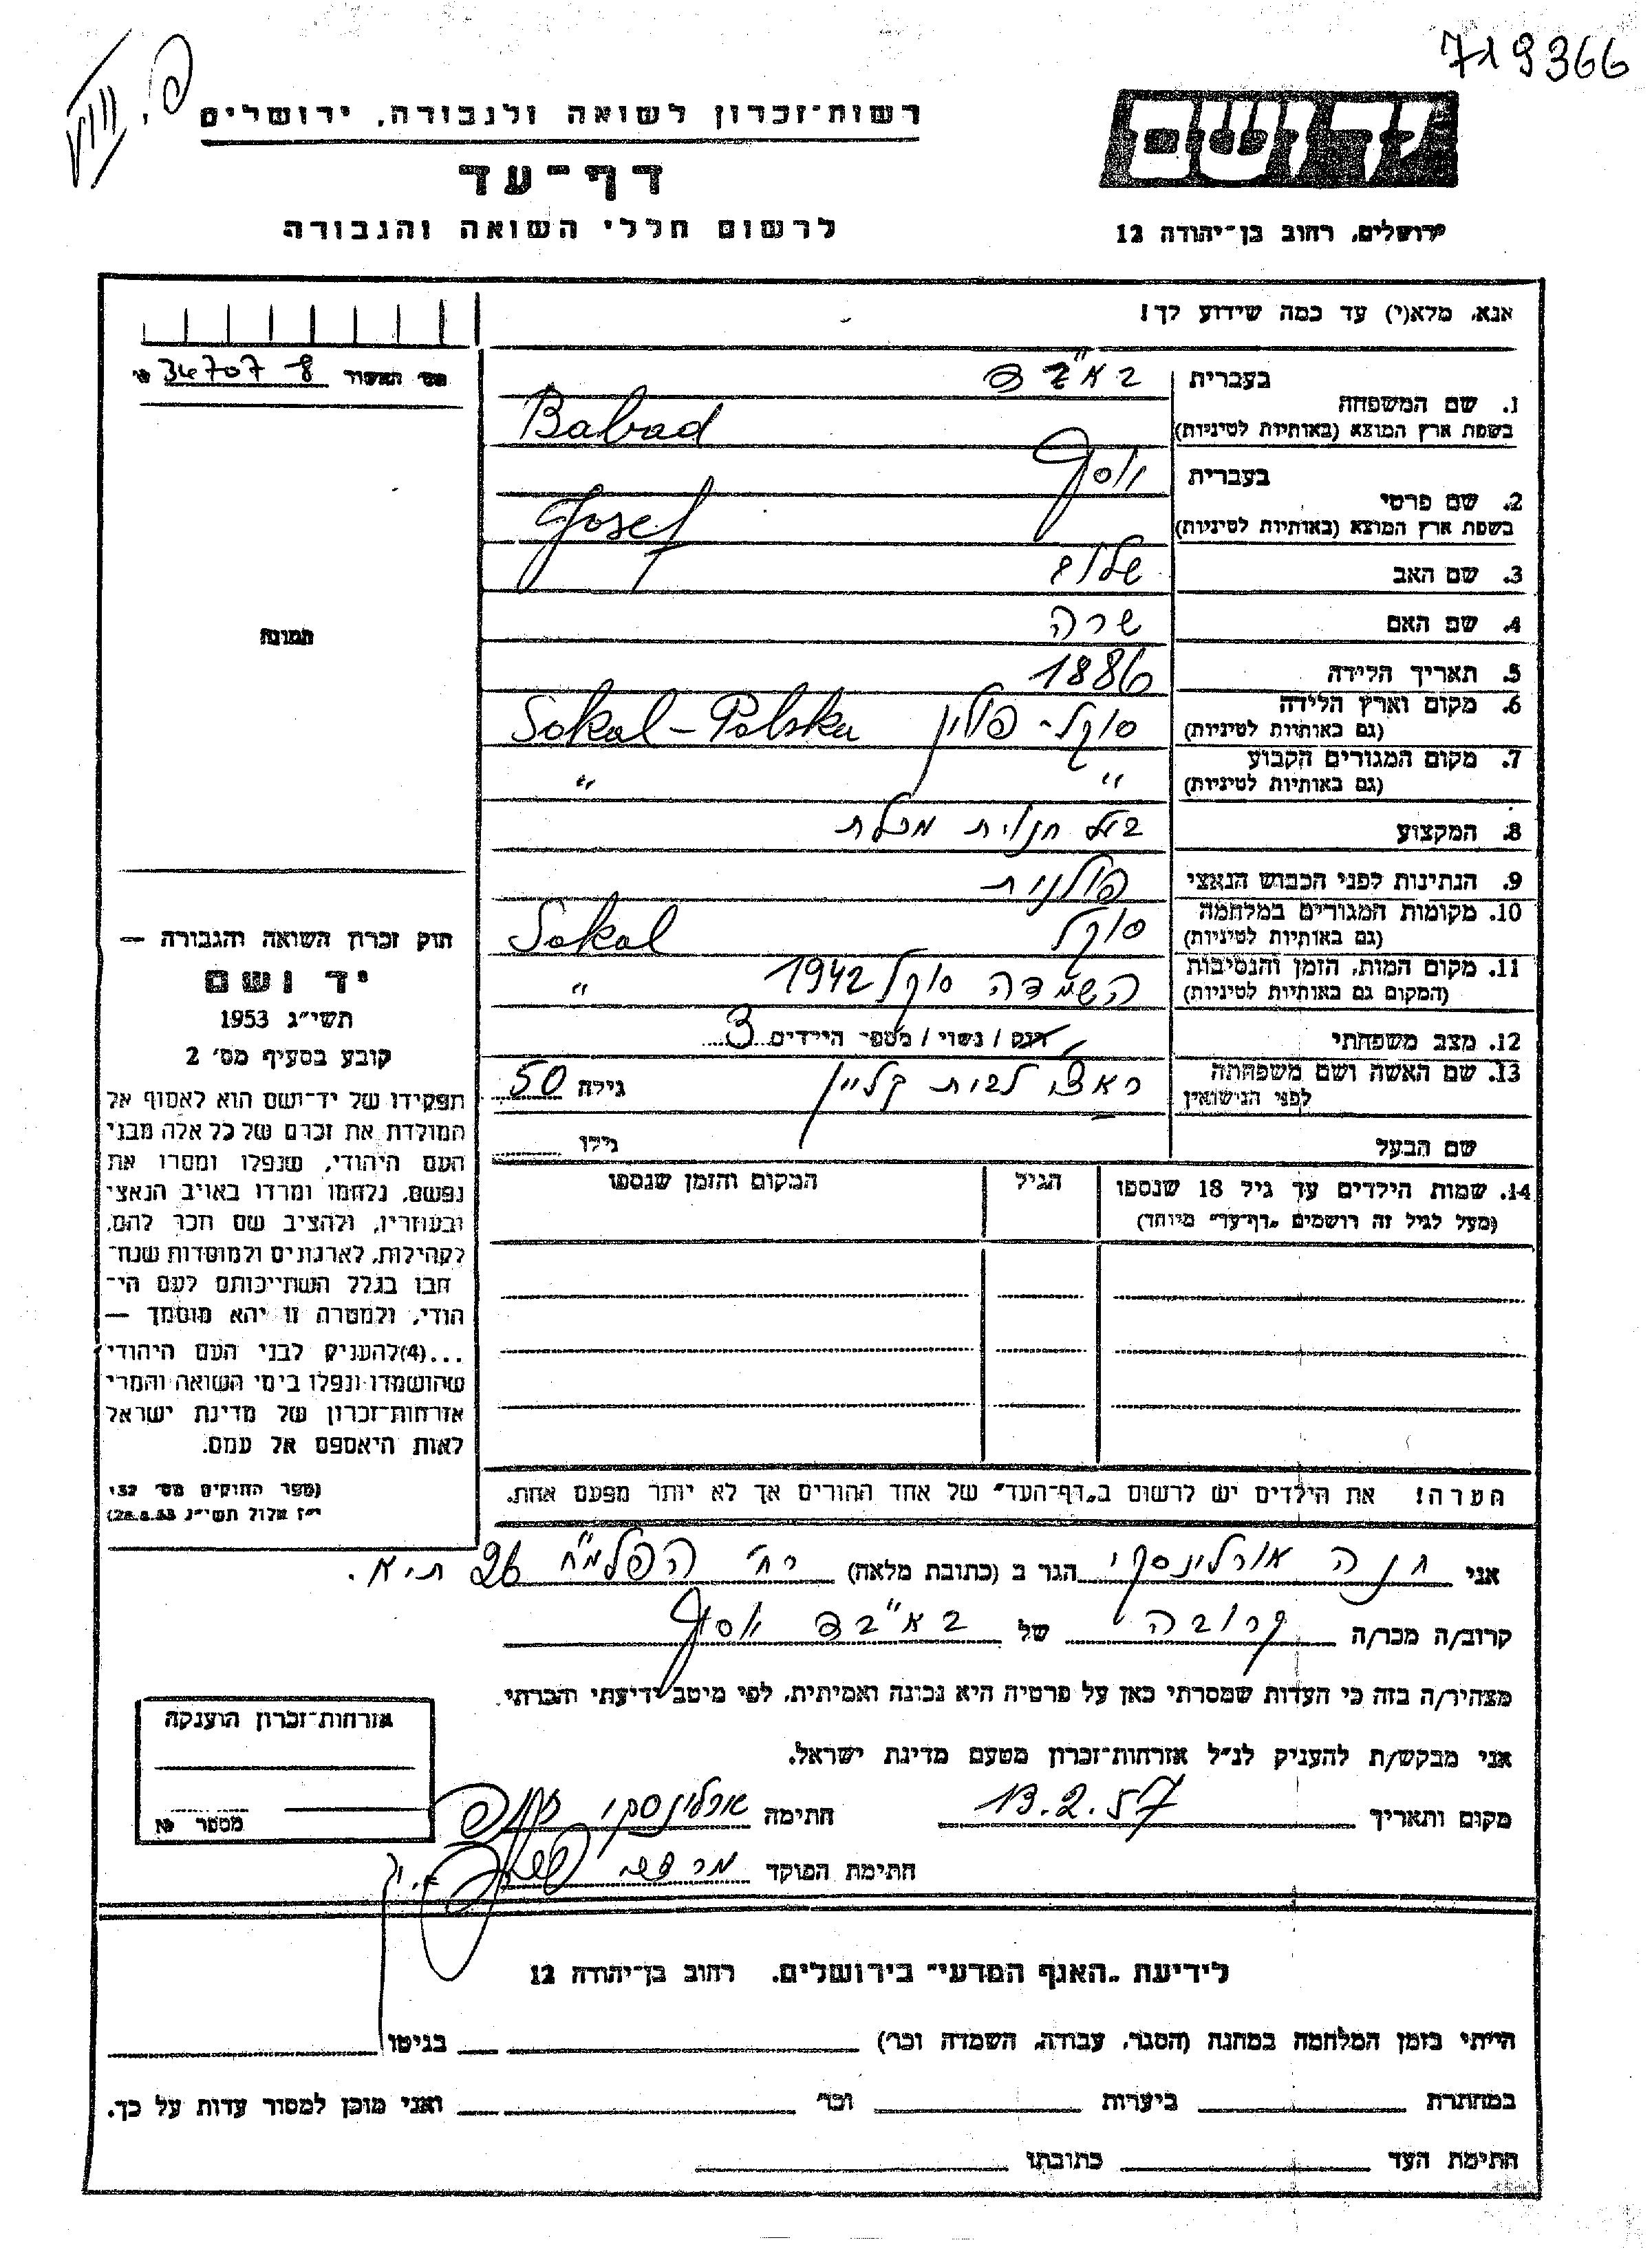 719366
רשות־זכרון לשואה ולגבורה, ירושלים
דף־עד
לרשום חללי השואה והגבורה
ידושם
ירושלים, רחוב בן־יהודה 12
אנא, מלא(י) עד כמה שידוע לך!
מס׳ האשור 34707 8
בעברית בא"בד
1. שם המשפחה
בשפת ארץ המוצא (באותיות לטיניות) Babad
בעברית יוסף
2. שם פרטי
בשפת ארץ המוצא (באותיות לטיניות) Josef
3. שם האב
4. שם האם שרה
5. תאריך הלידה 1886
6. מקום וארץ הלידה סוקל - פולין Sokal - Polska
(גם באותיות לטיניות)
7. מקום המגורים הקבוע " "
(גם באותיות לטיניות)
8. המקצוע בעל חנוית מכלת
9. הנתינות לפני הכבוש הנאצי פולנית
10. מקומות המגורים במלחמה סוקל Sokal
(גם באותיות לטיניות)
11. מקום המות, הזמן והנסיבות השמדה סוקל 1942 "
(המקום גם באותיות לטיניות)
12. מצב משפחתי רווק / נשוי / מספר הילדים 3
13. שם האשה ושם משפחתה לבית קליין גילה 50
לפני הנישואין
שם הבעל גילו
14. שמות הילדים עד גיל 18 שנספו הגיל המקום והזמן שנספו
(מעל לגיל זה רושמים „דף־עד" מיוחד)
הערה! את הילדים יש לרשום ב„דף־העד" של אחד ההורים אך לא יותר מפעם אחת.
תמונה
חוק זכרון השואה והגבורה —
יד ושם
תשי״ג 1953
קובע בסעיף מס׳ 2
תפקידו של יד־ושם הוא לאסוף אל
המולדת את זכרם של כל אלה מבני
העם היהודי, שנפלו ומסרו את
נפשם, נלחמו ומרדו באויב הנאצי
ובעוזריו, ולהציב שם וזכר להם,
לקהילות, לארגונים ולמוסדות שנח־
רבו בגלל השתייכותם לעם הי־
הודי, ולמטרה זו יהא מוסמך —
...(4)להעניק לבני העם היהודי
שהושמדו ונפלו בימי השואה והמרי
אזרחות־זכרון של מדינת ישראל
לאות היאספם אל עמם.
(ספר החוקים מס׳ 132
י״ז אלול תשי״ג 28.8.53)
אני חנה אורלינסקי הגר ב (כתובת מלאה) רח׳ הפלמ"ח 26 ת.א.
קרוב/ה מכר/ה קרובה של בא"בד יוסף
מצהיר/ה בזה כי העדות שמסרתי כאן על פרטיה היא נכונה ואמיתית, לפי מיטב ידיעתי והכרתי.
אני מבקש/ת להעניק לנ״ל אזרחות־זכרון מטעם מדינת ישראל.
מקום ותאריך 13.2.57 חתימה אורלינסקי חנה
חתימת הפוקד
אזרחות־זכרון הוענקה
מספר
לידיעת „האגף המדעי" בירושלים, רחוב בן־יהודה 12
הייתי בזמן המלחמה במחנה (הסגר, עבודה, השמדה וכו׳) בגיטו
במחתרת ביערות וכו׳ ואני מוכן למסור עדות על כך.
חתימת העד כתובתו